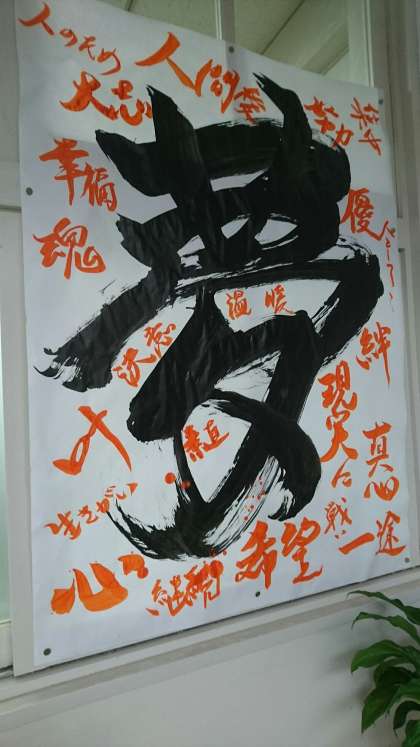 人のため
大志
人間
努力
幸福
魂
夢
優
温暖
決意
絆
叶
素直
現実に挑戦
真心
生きがい
心
継続
希望
一途